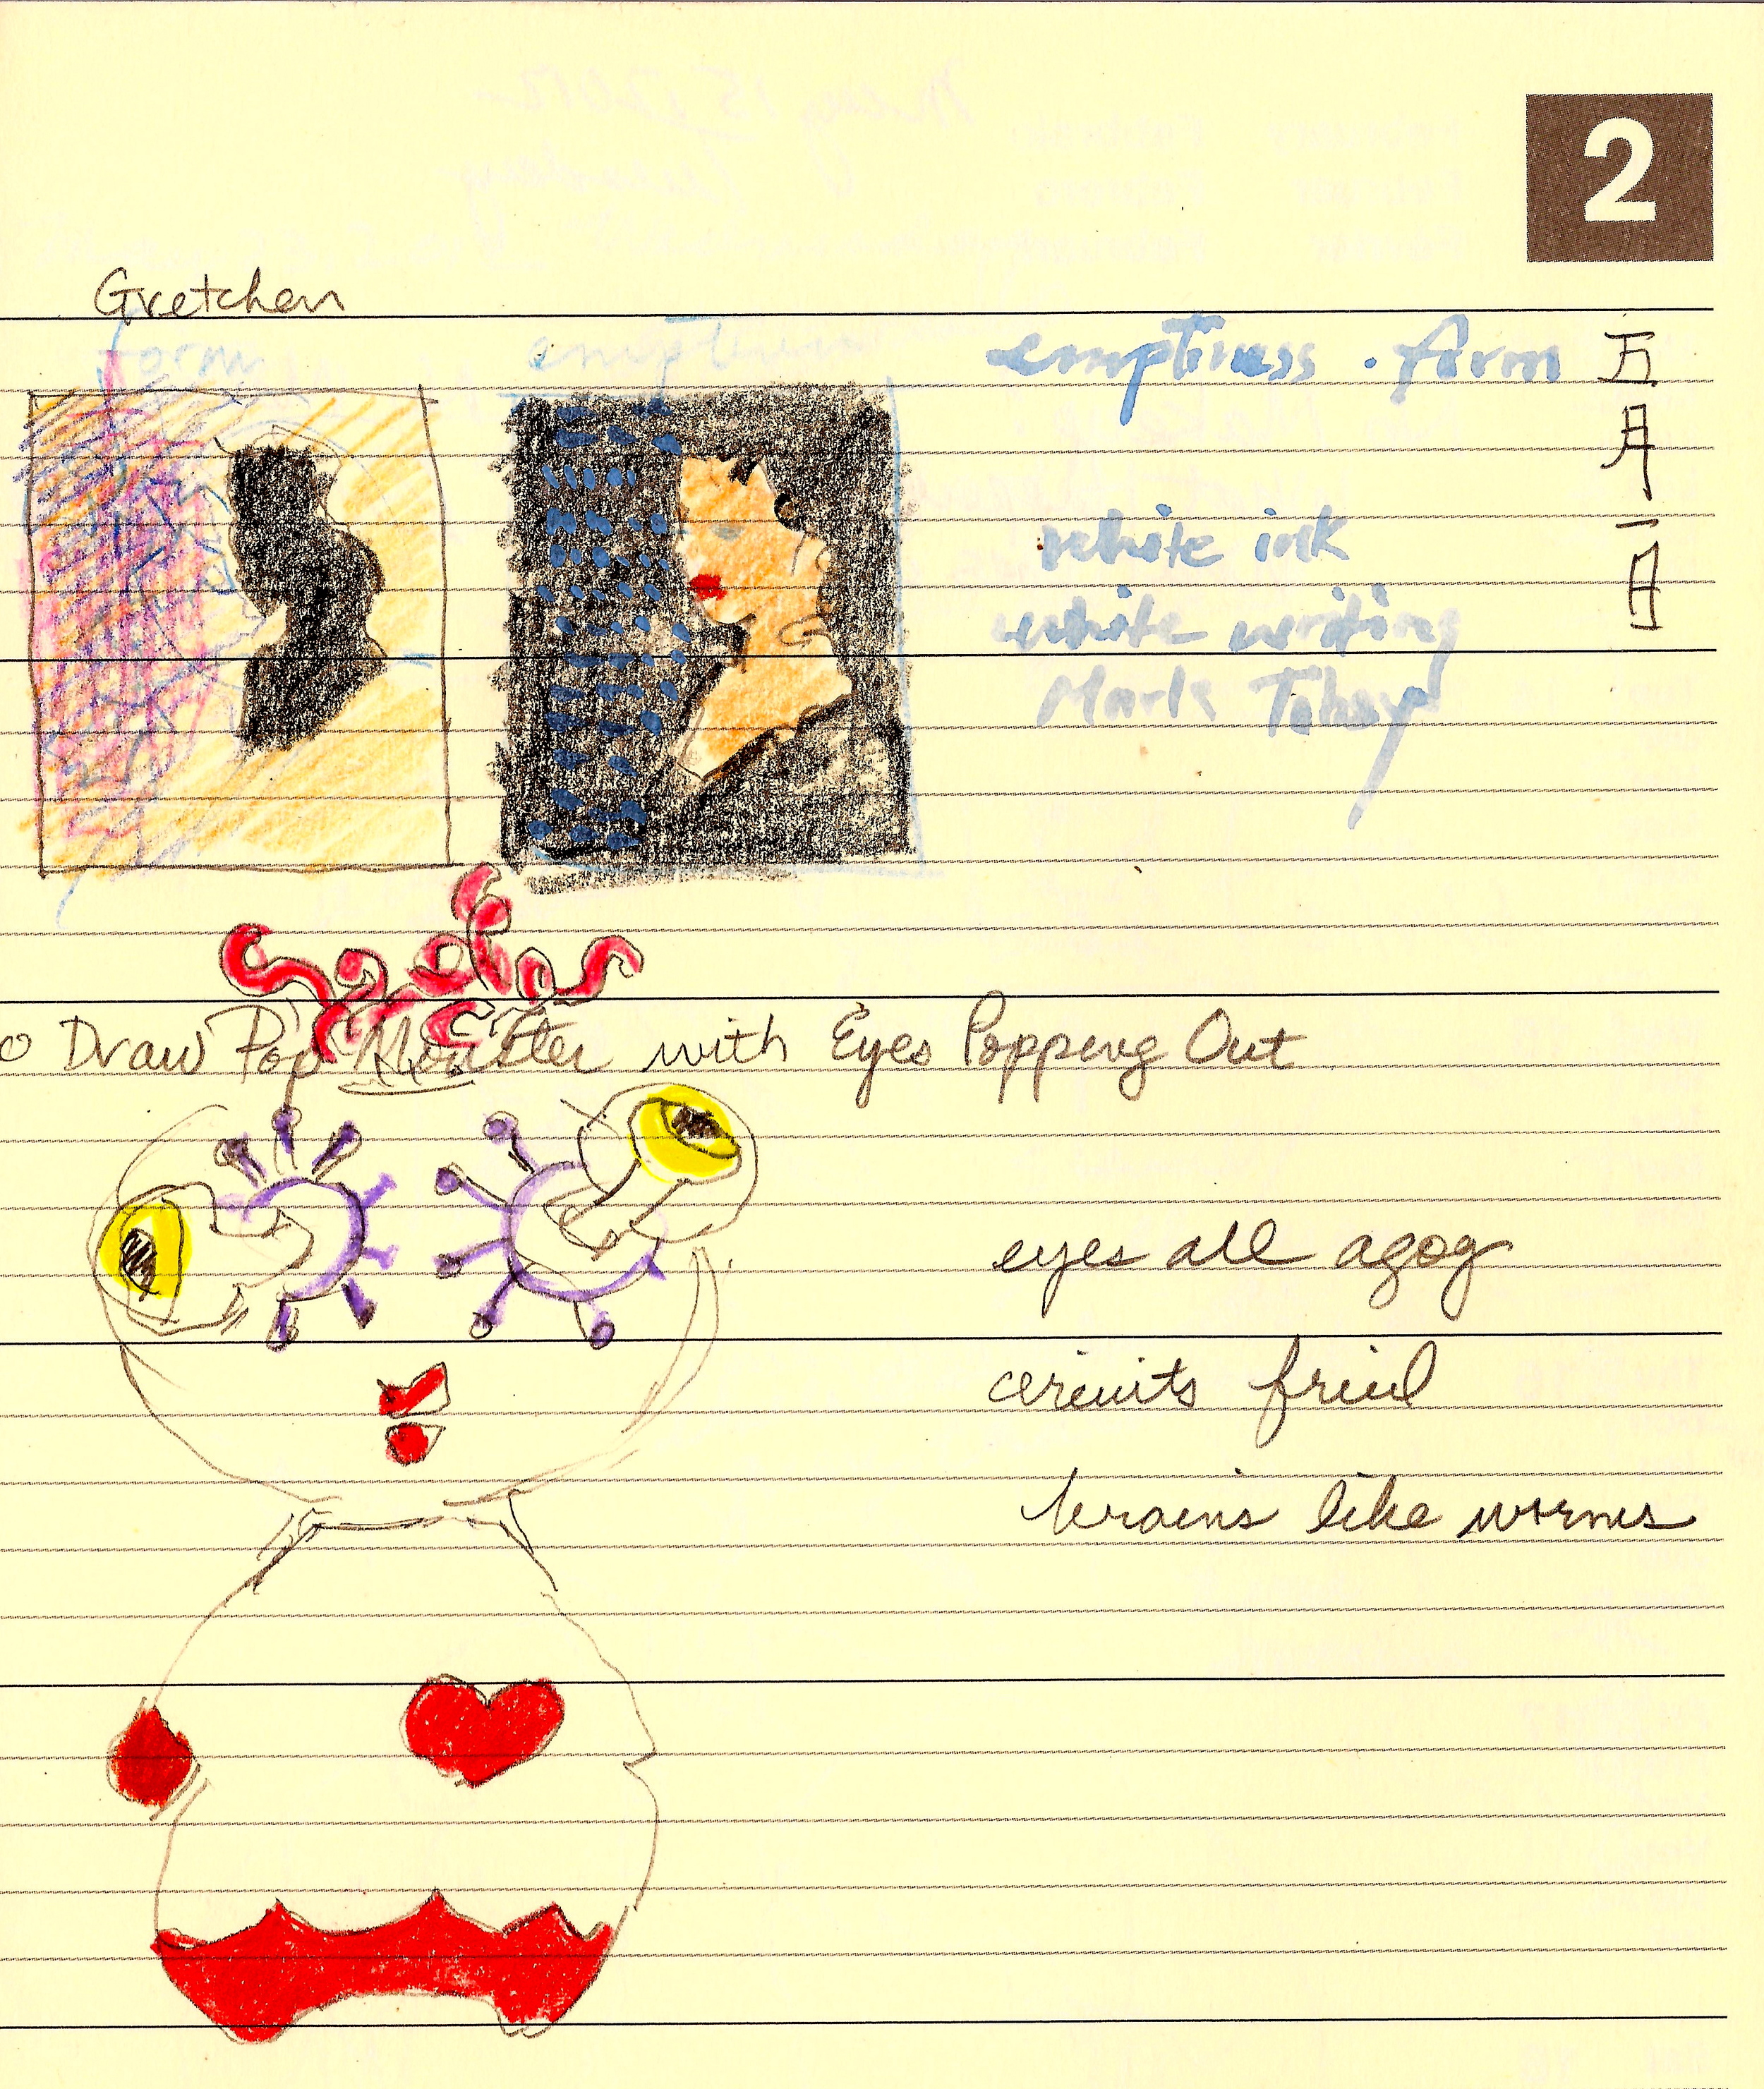 2
Gretchen
form emptiness
emptiness . form
五月一日
white ink
white writing
Mark Tobey
Draw Pop Monster with Eyes Popping Out
eyes all agog
circuits fried
brains like worms